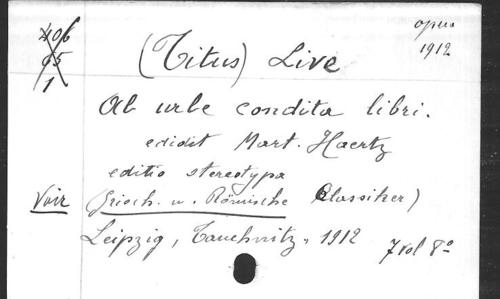 406
95
1
opera
1912
(Titus) Live
Ab urbe condita libri.
edidit Mart. Haertz
editio stereotypa
Voir Griech. u. Römische Classiker)
Leipzig, Tauchnitz, 1912
7 vol 8°